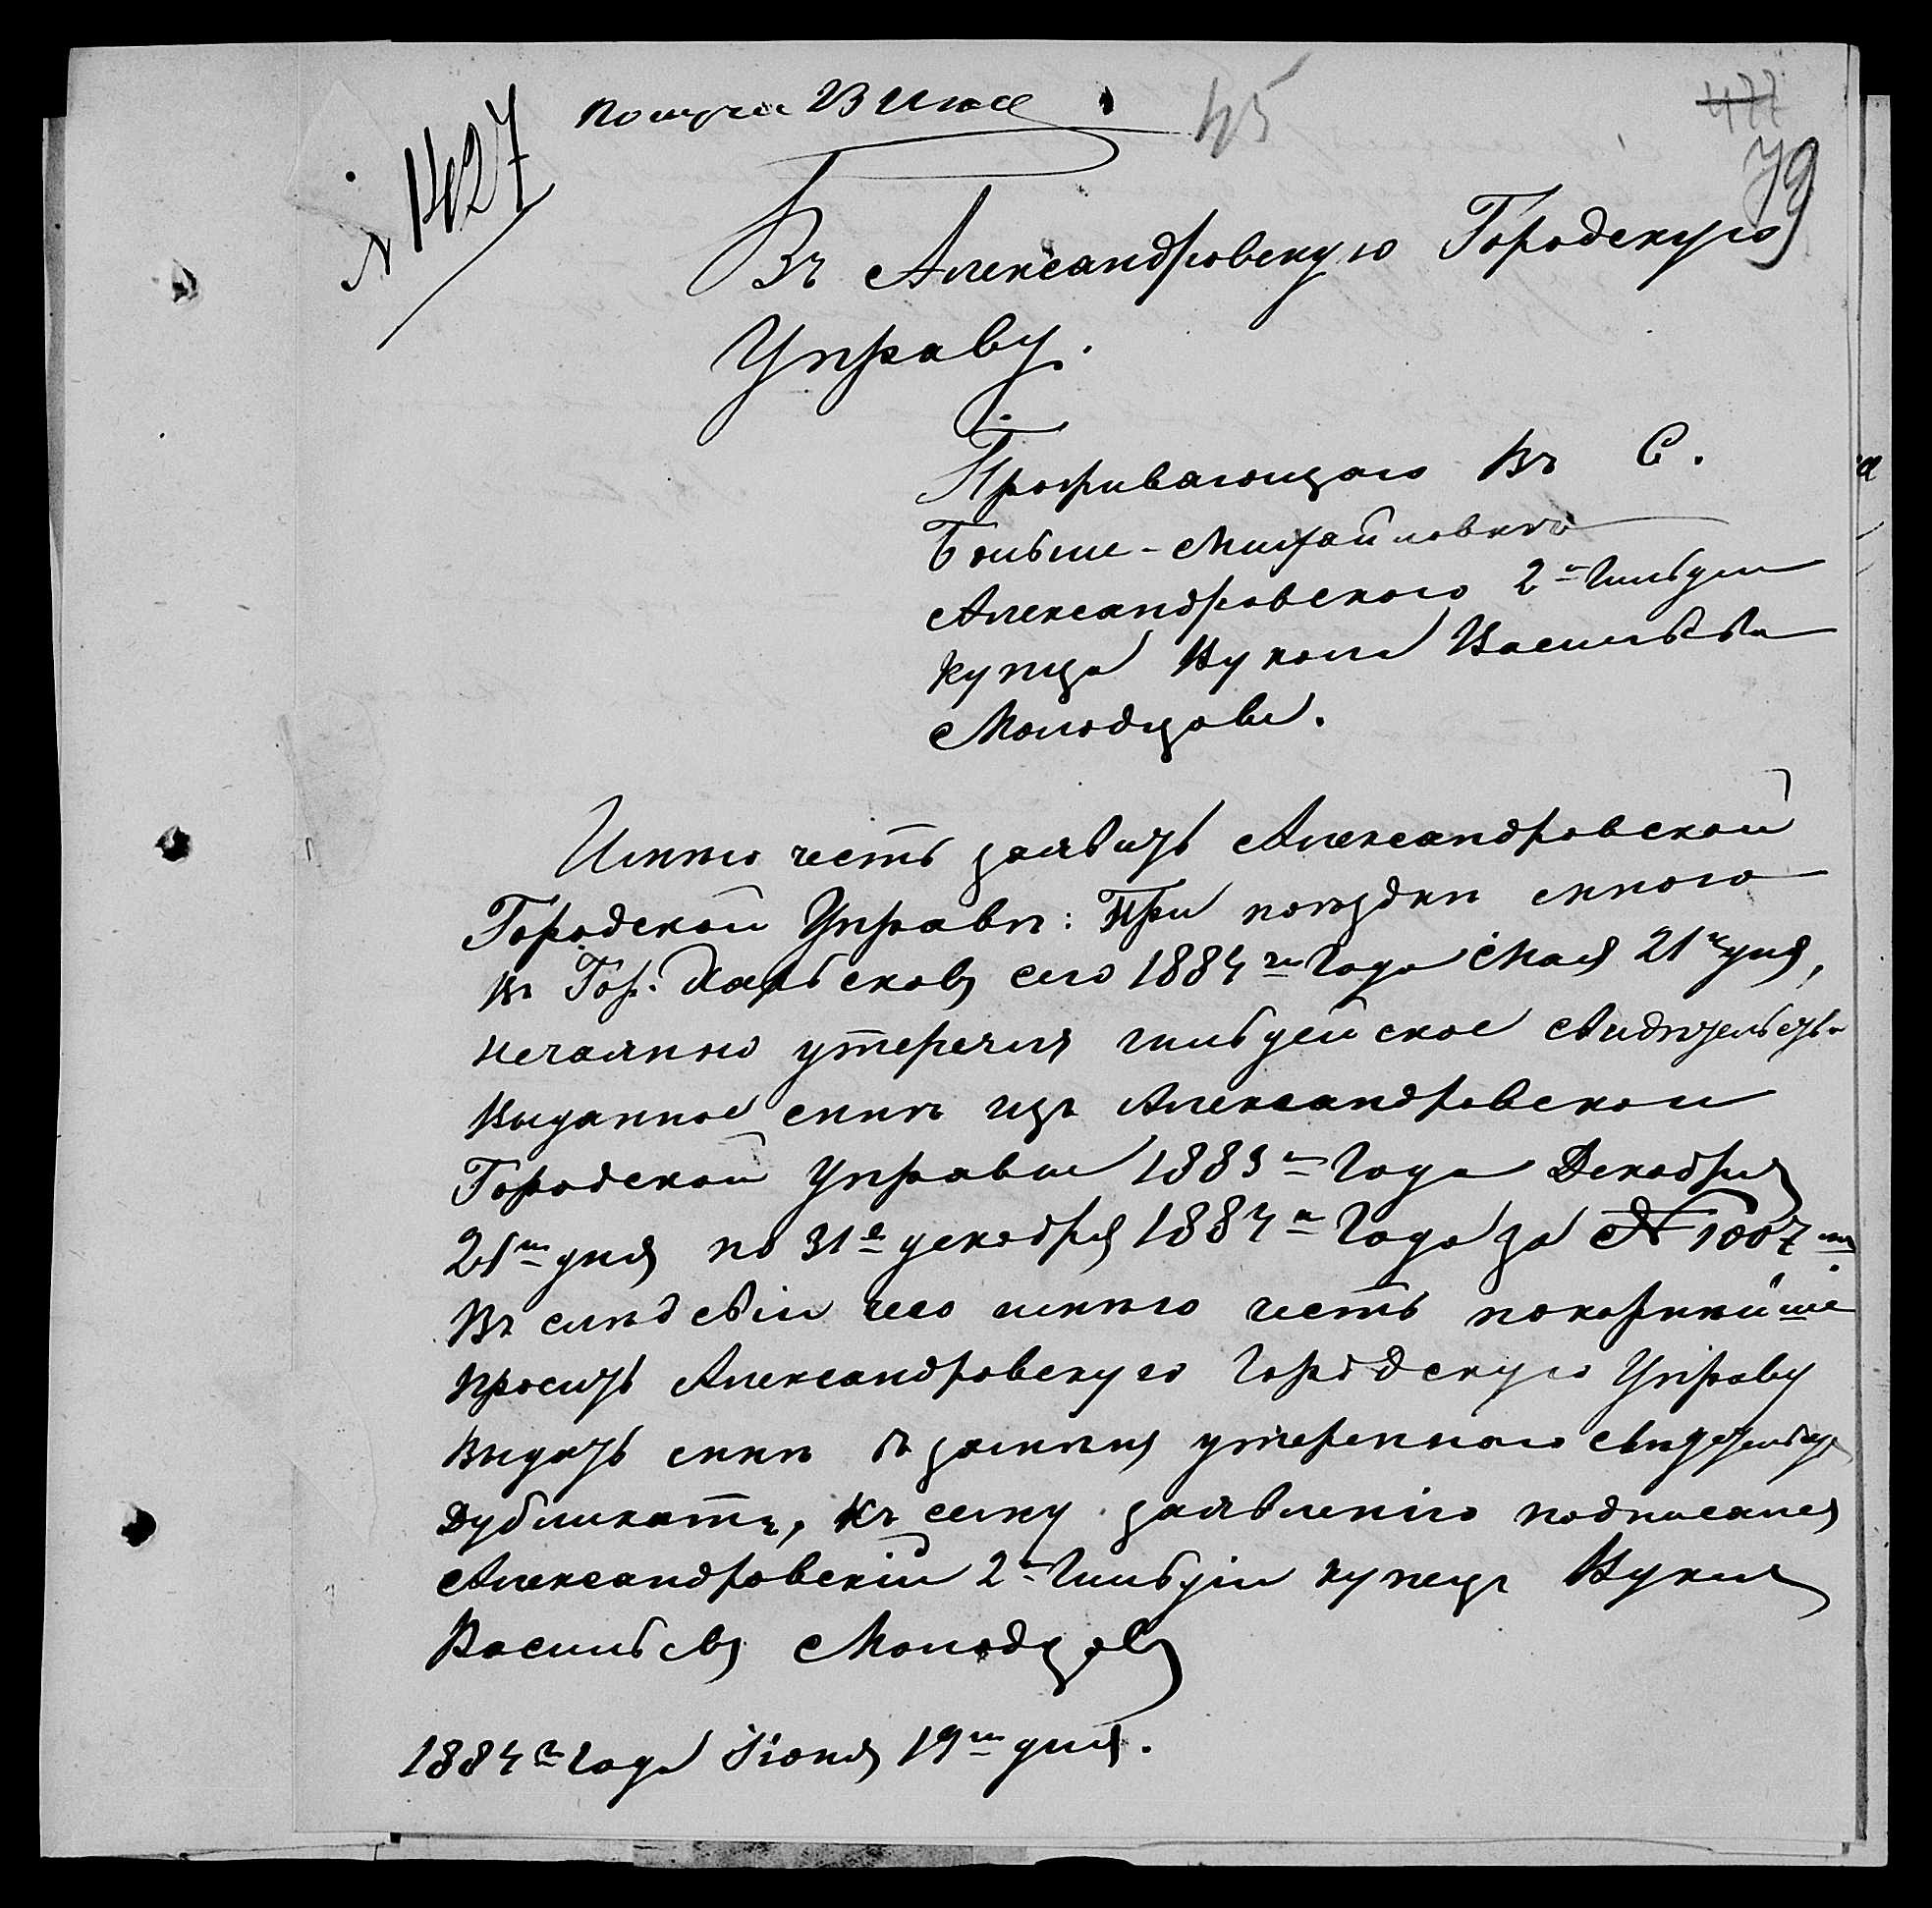 Получен 23 Июня
45
477
79
№ 1427
Въ Александровскую Городскую
Управу.
Проживающаго въ С.
Больше-Михайловкѣ
Александровского 2й Гильдии
купца Вукола Васильева
Молодцова.
Имѣю честь заявить Александровской
Городской Управѣ: При поѣздки мною
въ Гор. Харьсковъ сего 1884го Года Мая 21го дня,
нечаянно утерялъ гильдейское свидѣтельство
выданное мнѣ изъ Александровской
Городской Управы 1883го Года Декабря
21го дня по 31е декабря 1884го Года за № 1007м
Въ слѣдсвіи чего имѣю честь покорнѣйше
просить Александровскую Городскую Управу
выдать мнѣ въ замѣнъ утеренного свидетельства
Дубликатъ, къ сему заявленію подписался
Александровскій 2й Гильдіи купецъ Вуколъ
Васильевъ Молодцовъ
1884го года Июня 19го дня.